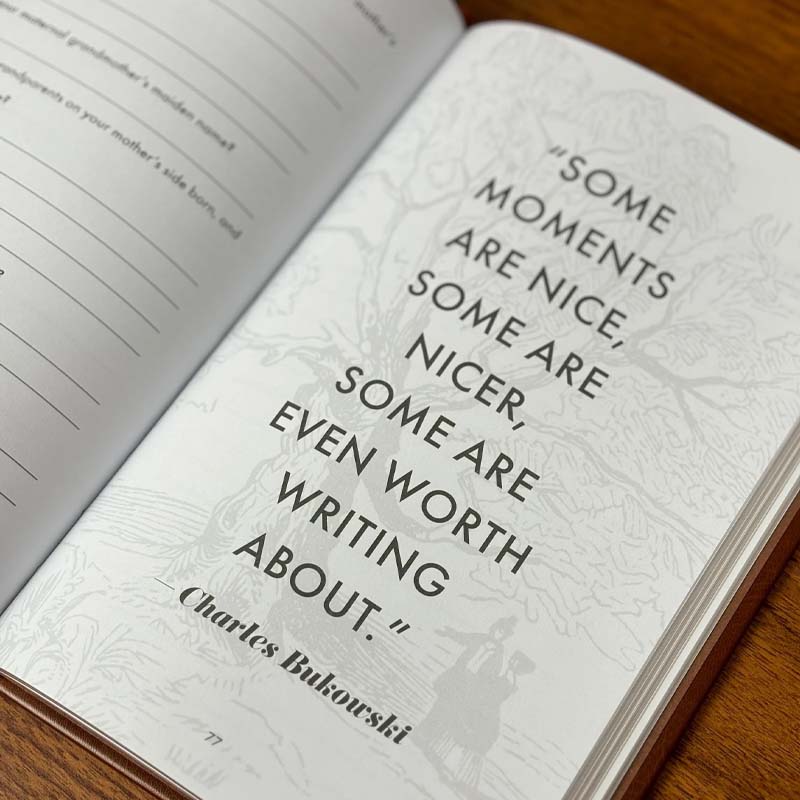 mother's
our maternal grandmother's maiden name?
randparents on your mother's side born, and
?
?
“SOME
MOMENTS
ARE NICE,
SOME ARE
NICER,
SOME ARE
EVEN WORTH
WRITING
ABOUT.”
— Charles Bukowski
77